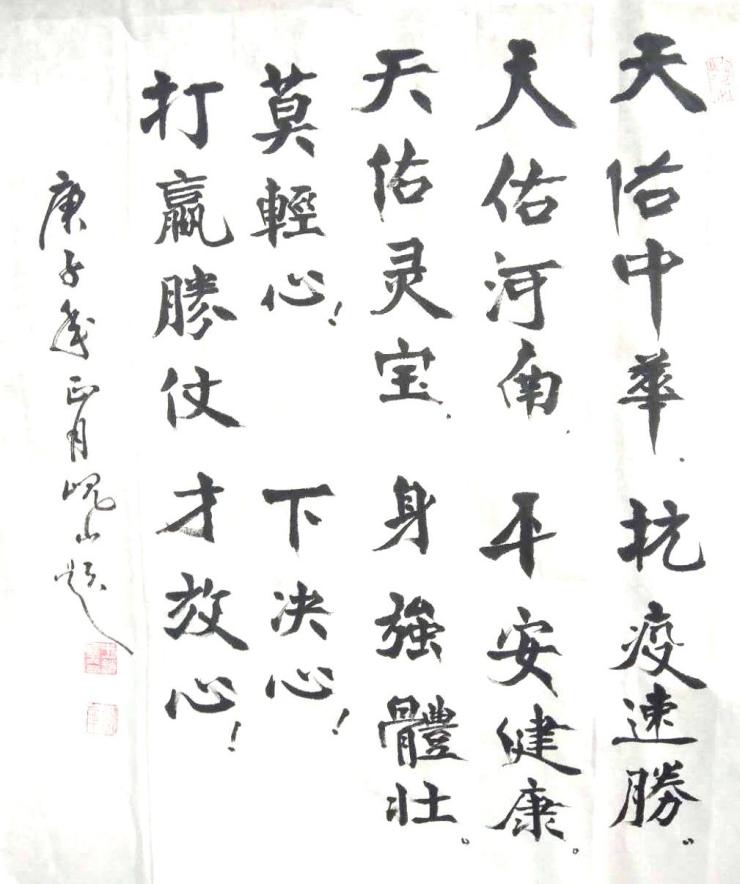 天佑中華.抗疫速勝。
天佑河南.平安健康。
天佑灵宝.身強體壮。
莫輕心!下决心!
打贏勝仗才放心!
庚子年正月山题